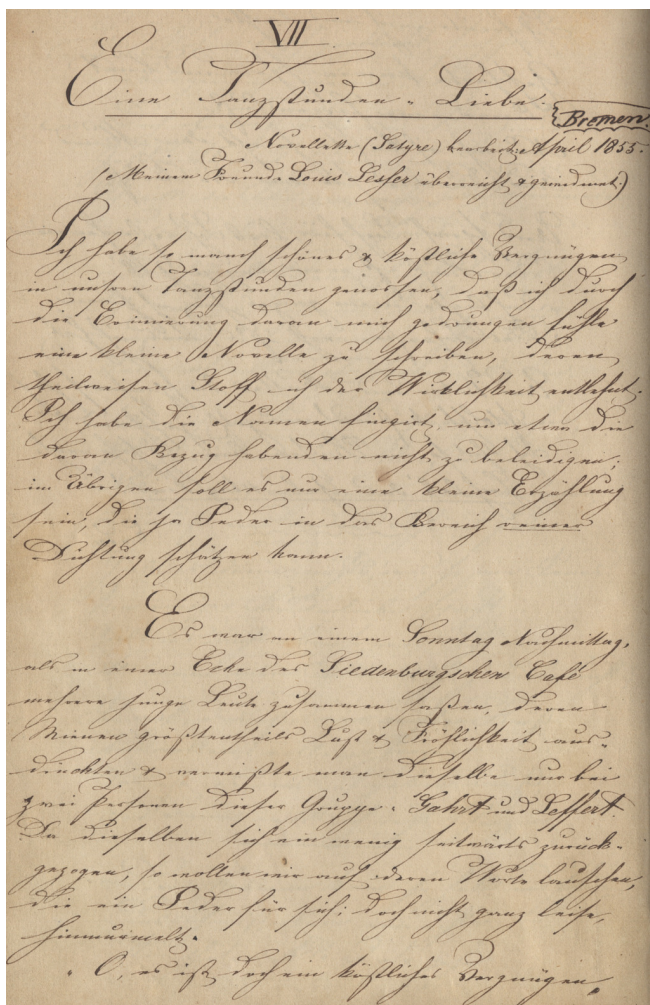 VII
Eine Tanzstunden-Liebe.
Bremen.
Novellette (Satyre) bearbeitet April 1855.
(Meinem Freunde Louis Lesser überreicht & gewidmet.)
Ich habe so manch schönes & köstliche Vergnügen
in unsren Tanzstunden genossen, daß ich durch
die Erinnerung daran mich gedrungen fühle
eine kleine Novelle zu schreiben, deren
theilweisen Stoff ich der Wirklichkeit entlehnt.
Ich habe die Namen fingirt, um etwa die
daran Bezug habenden nicht zu beleidigen;
im Übrigen soll es nur eine kleine Erzählung
sein, die ja Jeder in das Bereich reiner
Dichtung schätzen kann.
Es war an einem Sonntag Nachmittag,
als in einer Ecke des Siedenburgschen Café
mehrere junge Leute zusammen saßen, deren
Mienen größtentheils Lust & Fröhlichkeit aus-
drückten & vermißte man dieselbe nur bei
zwei Personen dieser Gruppe: Gahrt und Leffert.
Da dieselben sich ein wenig seitwärts zurück-
gezogen, so wollen wir auf deren Worte lauschen,
die ein Jeder für sich; doch nicht ganz leise,
hinmurmelt.
"O, es ist doch ein köstliches Vergnügen,